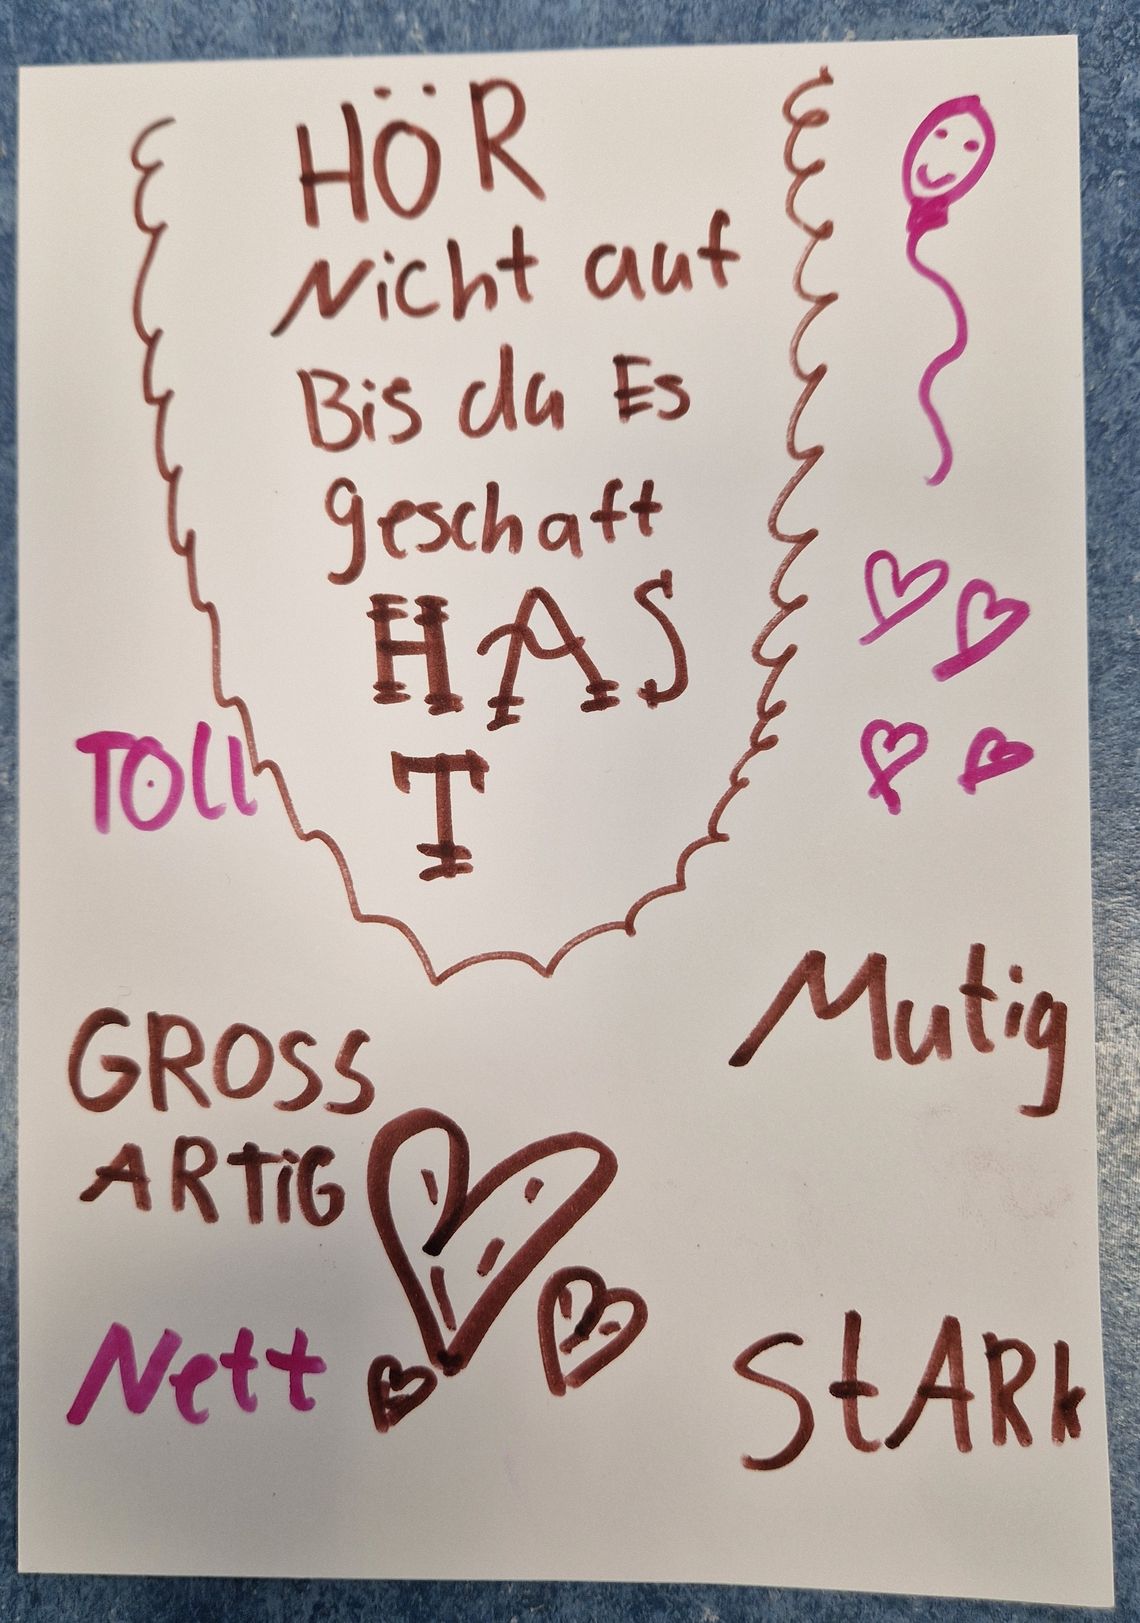 HÖR
Nicht auf
Bis du Es
geschaft
HAS
T
TOll
Mutig
GROSS
ARTiG
Nett
StARk